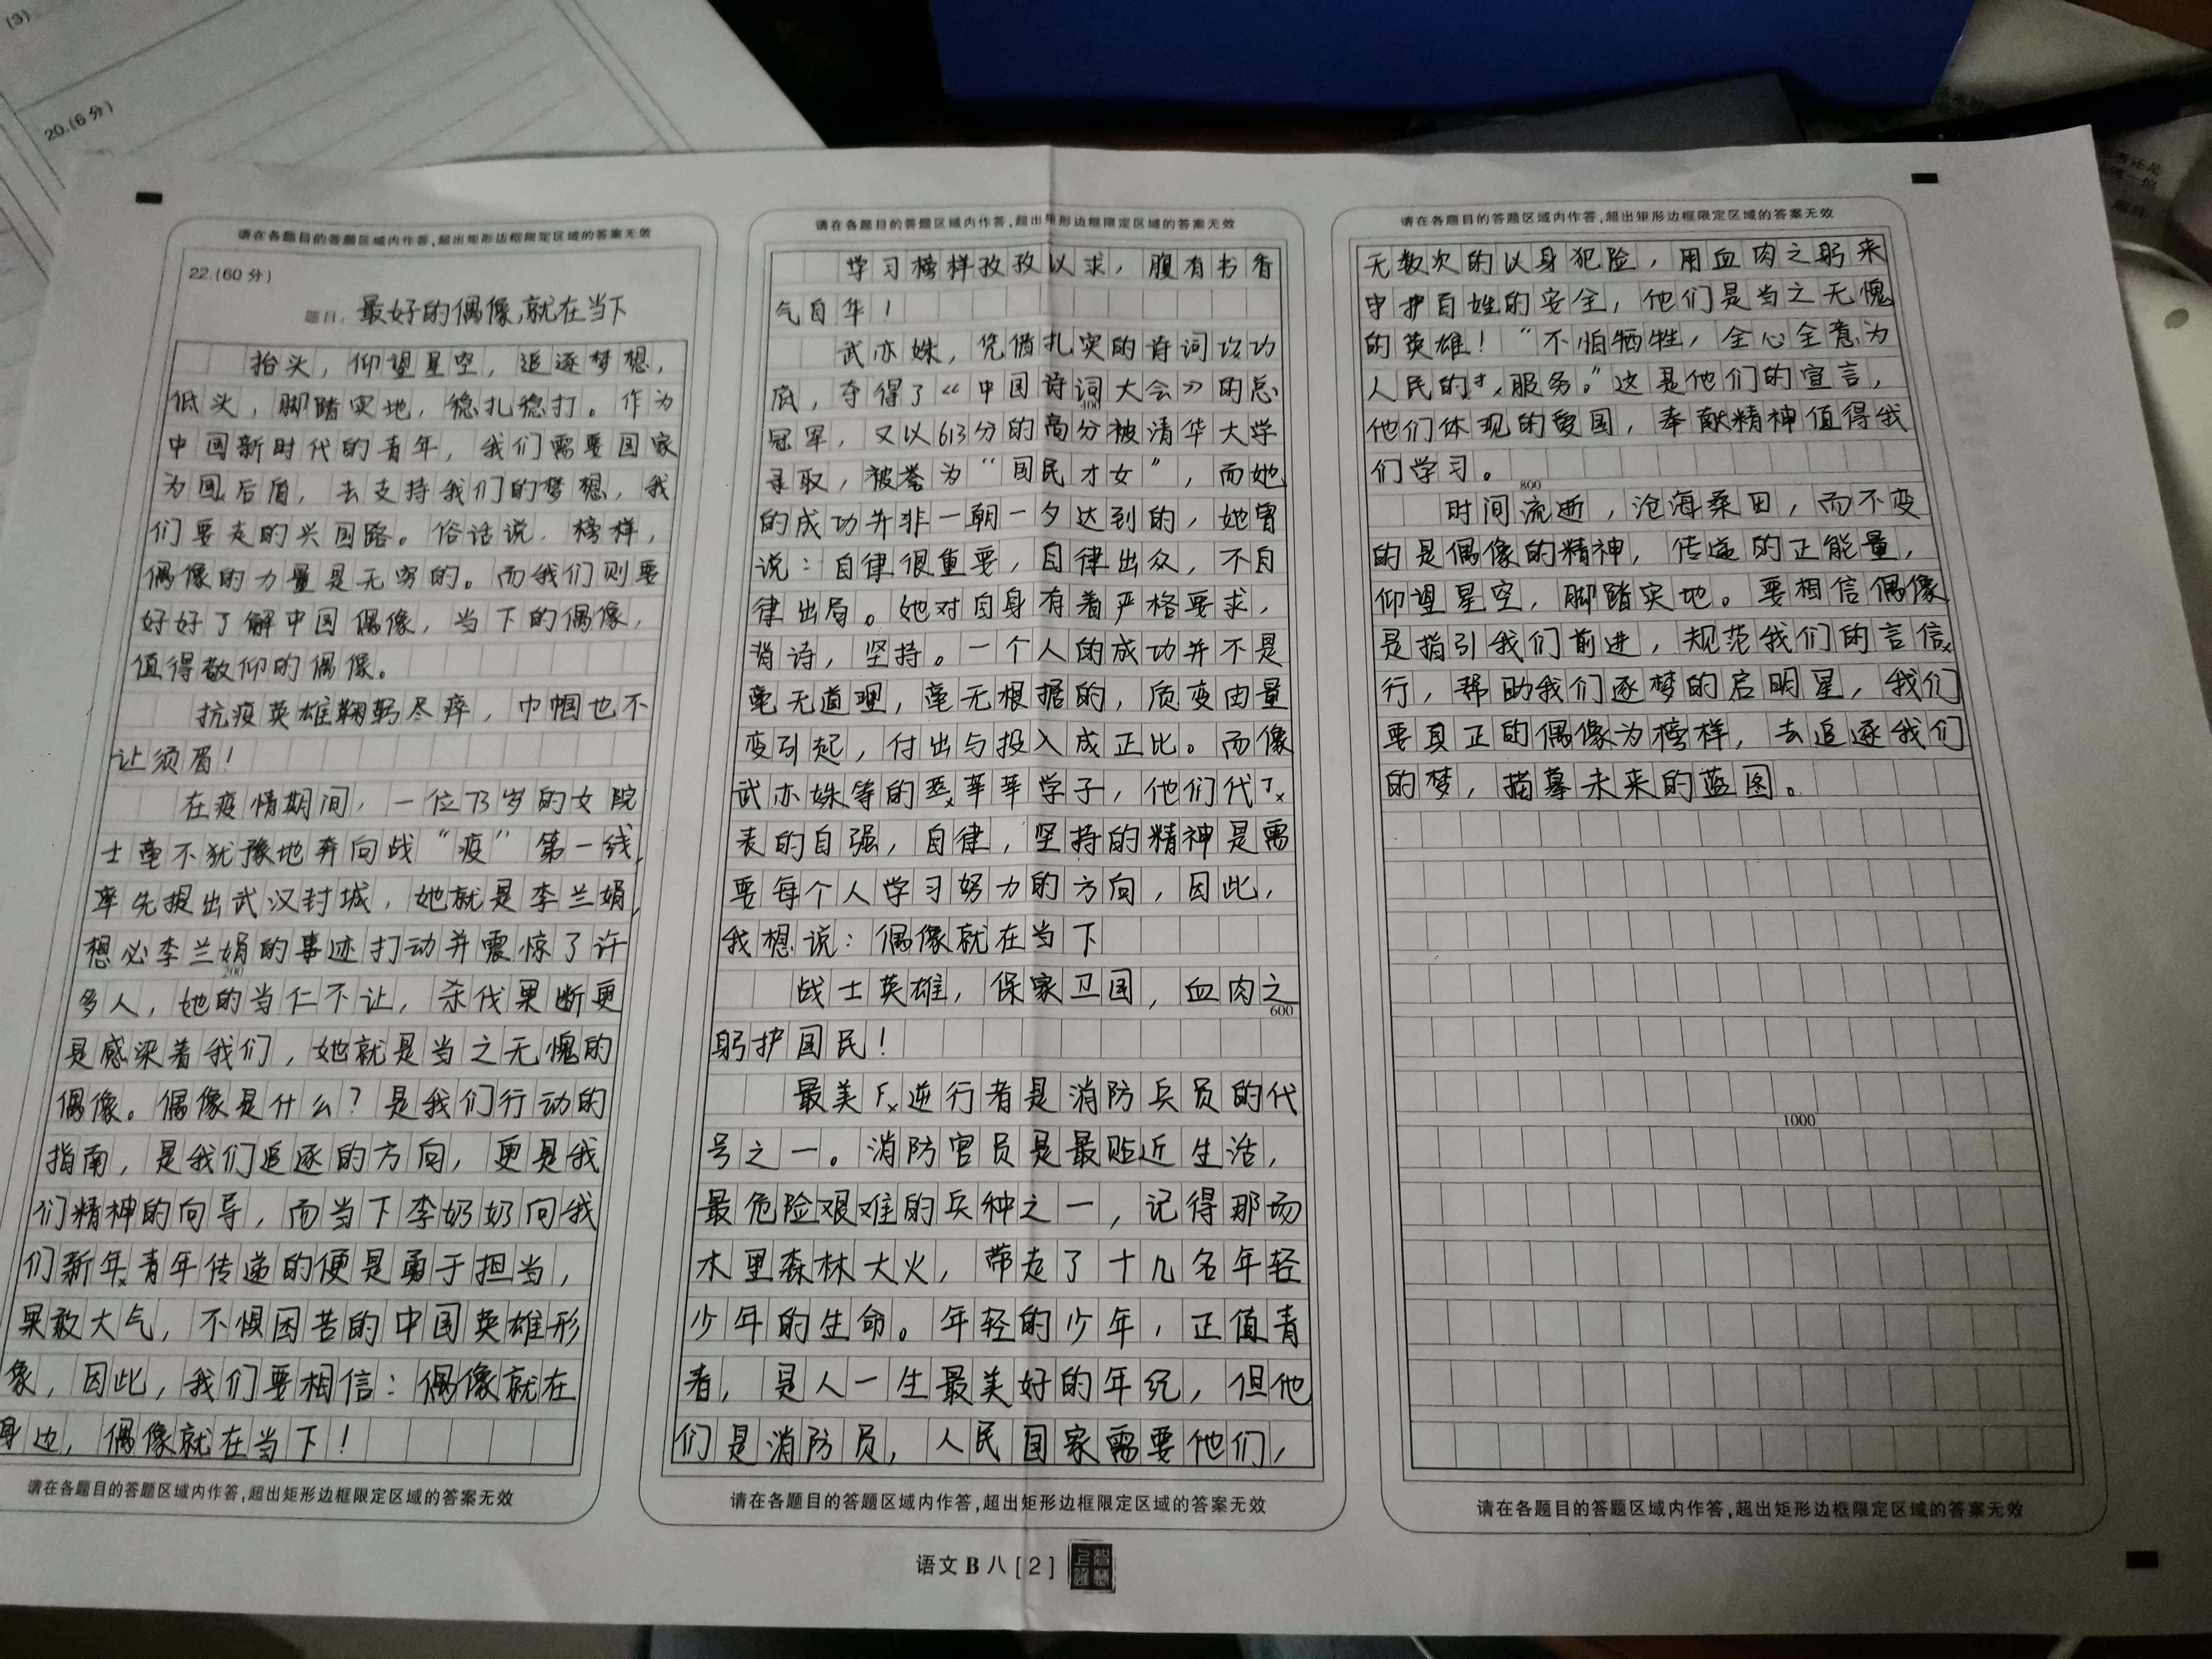 (3)
20.(6分)
请在各题目的答题区域内作答,超出矩形边框限定区域的答案无效
22.(60分)
题目: 最好的偶像,就在当下
抬头，仰望星空，追逐梦想，
低头，脚踏实地，稳扎稳打。作为
中国新时代的青年，我们需要国家
为后盾，去支持我们的梦想，我
们要走的兴国路。俗话说，榜样，
偶像的力量是无穷的。而我们则要
好好了解中国偶像，当下的偶像，
值得敬仰的偶像。
抗疫英雄鞠躬尽瘁，巾帼也不
让须眉！
在疫情期间，一位73岁的女院
士毫不犹豫地奔向战“疫”第一线，
率先提出武汉封城，她就是李兰娟，
想必李兰娟的事迹打动并震惊了许
200
多人，她的当仁不让，杀伐果断更
是感染着我们，她就是当之无愧的
偶像。偶像是什么？是我们行动的
指南，是我们追逐的方向，更是我
们精神的向导，而当下李奶奶向我
们新年青年传递的便是勇于担当，
果敢大气，不惧困苦的中国英雄形
像，因此，我们要相信：偶像就在
身边，偶像就在当下！
请在各题目的答题区域内作答,超出矩形边框限定区域的答案无效
请在各题目的答题区域内作答,超出矩形边框限定区域的答案无效
学习榜样孜孜以求，腹有书香
气自华！
武亦姝，凭借扎实的诗词功
底，夺得了《中国诗词大会》的总
400
冠军，又以613分的高分被清华大学
录取，被誉为“国民才女”，而她
的成功并非一朝一夕达到的，她曾
说：自律很重要，自律出众，不自
律出局。她对自身有着严格要求，
背诗，坚持。一个人的成功并不是
毫无道理，毫无根据的，质变由量
变引起，付出与投入成正比。而像
武亦姝等的莘莘学子，他们代
表的自强，自律，坚持的精神是需
要每个人学习努力的方向，因此，
我想说：偶像就在当下
战士英雄，保家卫国，血肉之
600
躬护国民！
最美逆行者是消防兵员的代
号之一。消防官员是最贴近生活，
最危险艰难的兵种之一，记得那场
木里森林大火，带走了十几名年轻
少年的生命。年轻的少年，正值青
春，是人一生最美好的年纪，但他
们是消防员，人民国家需要他们，
请在各题目的答题区域内作答,超出矩形边框限定区域的答案无效
请在各题目的答题区域内作答,超出矩形边框限定区域的答案无效
无数次的以身犯险，用血肉之躬来
守护百姓的安全，他们是当之无愧
的英雄！“不怕牺牲，全心全意为
人民的服务。”这是他们的宣言，
他们体现的爱国，奉献精神值得我
们学习。
800
时间流逝，沧海桑田，而不变
的是偶像的精神，传递的正能量，
仰望星空，脚踏实地。要相信偶像
是指引我们前进，规范我们的言信
行，帮助我们逐梦的启明星，我们
要真正的偶像为榜样，去追逐我们
的梦，描摹未来的蓝图。
1000
请在各题目的答题区域内作答,超出矩形边框限定区域的答案无效
语文 B 八 [2]